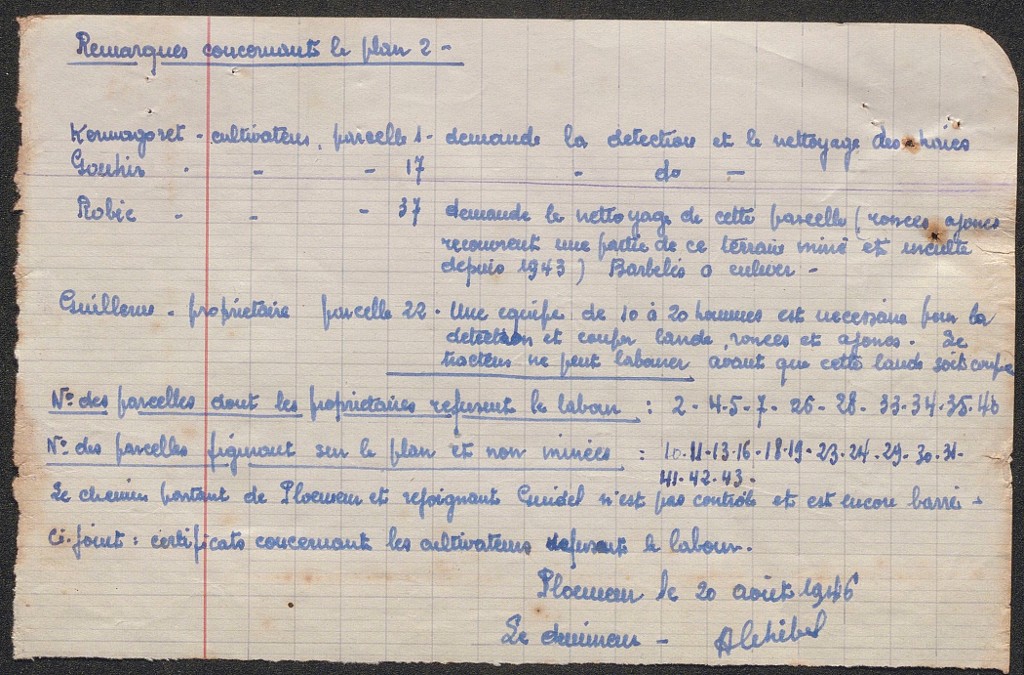 Remarques concernant le plan 2 -
Kermagoret - cultivateur, parcelle 1 - demande la detection et le nettoyage des haies
Gouhir - - - 17 - do -
Robic - - - 37 demande le nettoyage de cette parcelle (ronces ajoncs
recouvrent une partie de ce terrain miné et inculte
depuis 1943) Barbelés a enlever -
Guillerme - propriétaire parcelle 22 - Une equipe de 10 à 20 hommes est necessaire pour la
detection et couper lande, ronces et ajoncs. Le
tracteur ne peut labourer avant que cette lande soit coupé
Nos des parcelles dont les propriétaires refusent le labour : 2 - 4 - 5 - 7 - 26 - 28 - 33 - 34 - 35 - 40
Nos des parcelles figurant sur le plan et non minées : 10 - 11 - 13 - 16 - 18 - 19 - 23 - 24 - 29 - 30 - 31 -
41 - 42 - 43 -
Le chemin partant de Ploemeur et rejoignant Guidel n'est pas controlé et est encore barré -
Ci-joint : certificats concernant les cultivateurs refusant le labour.
Ploemeur le 20 août 1946
Le démineur -